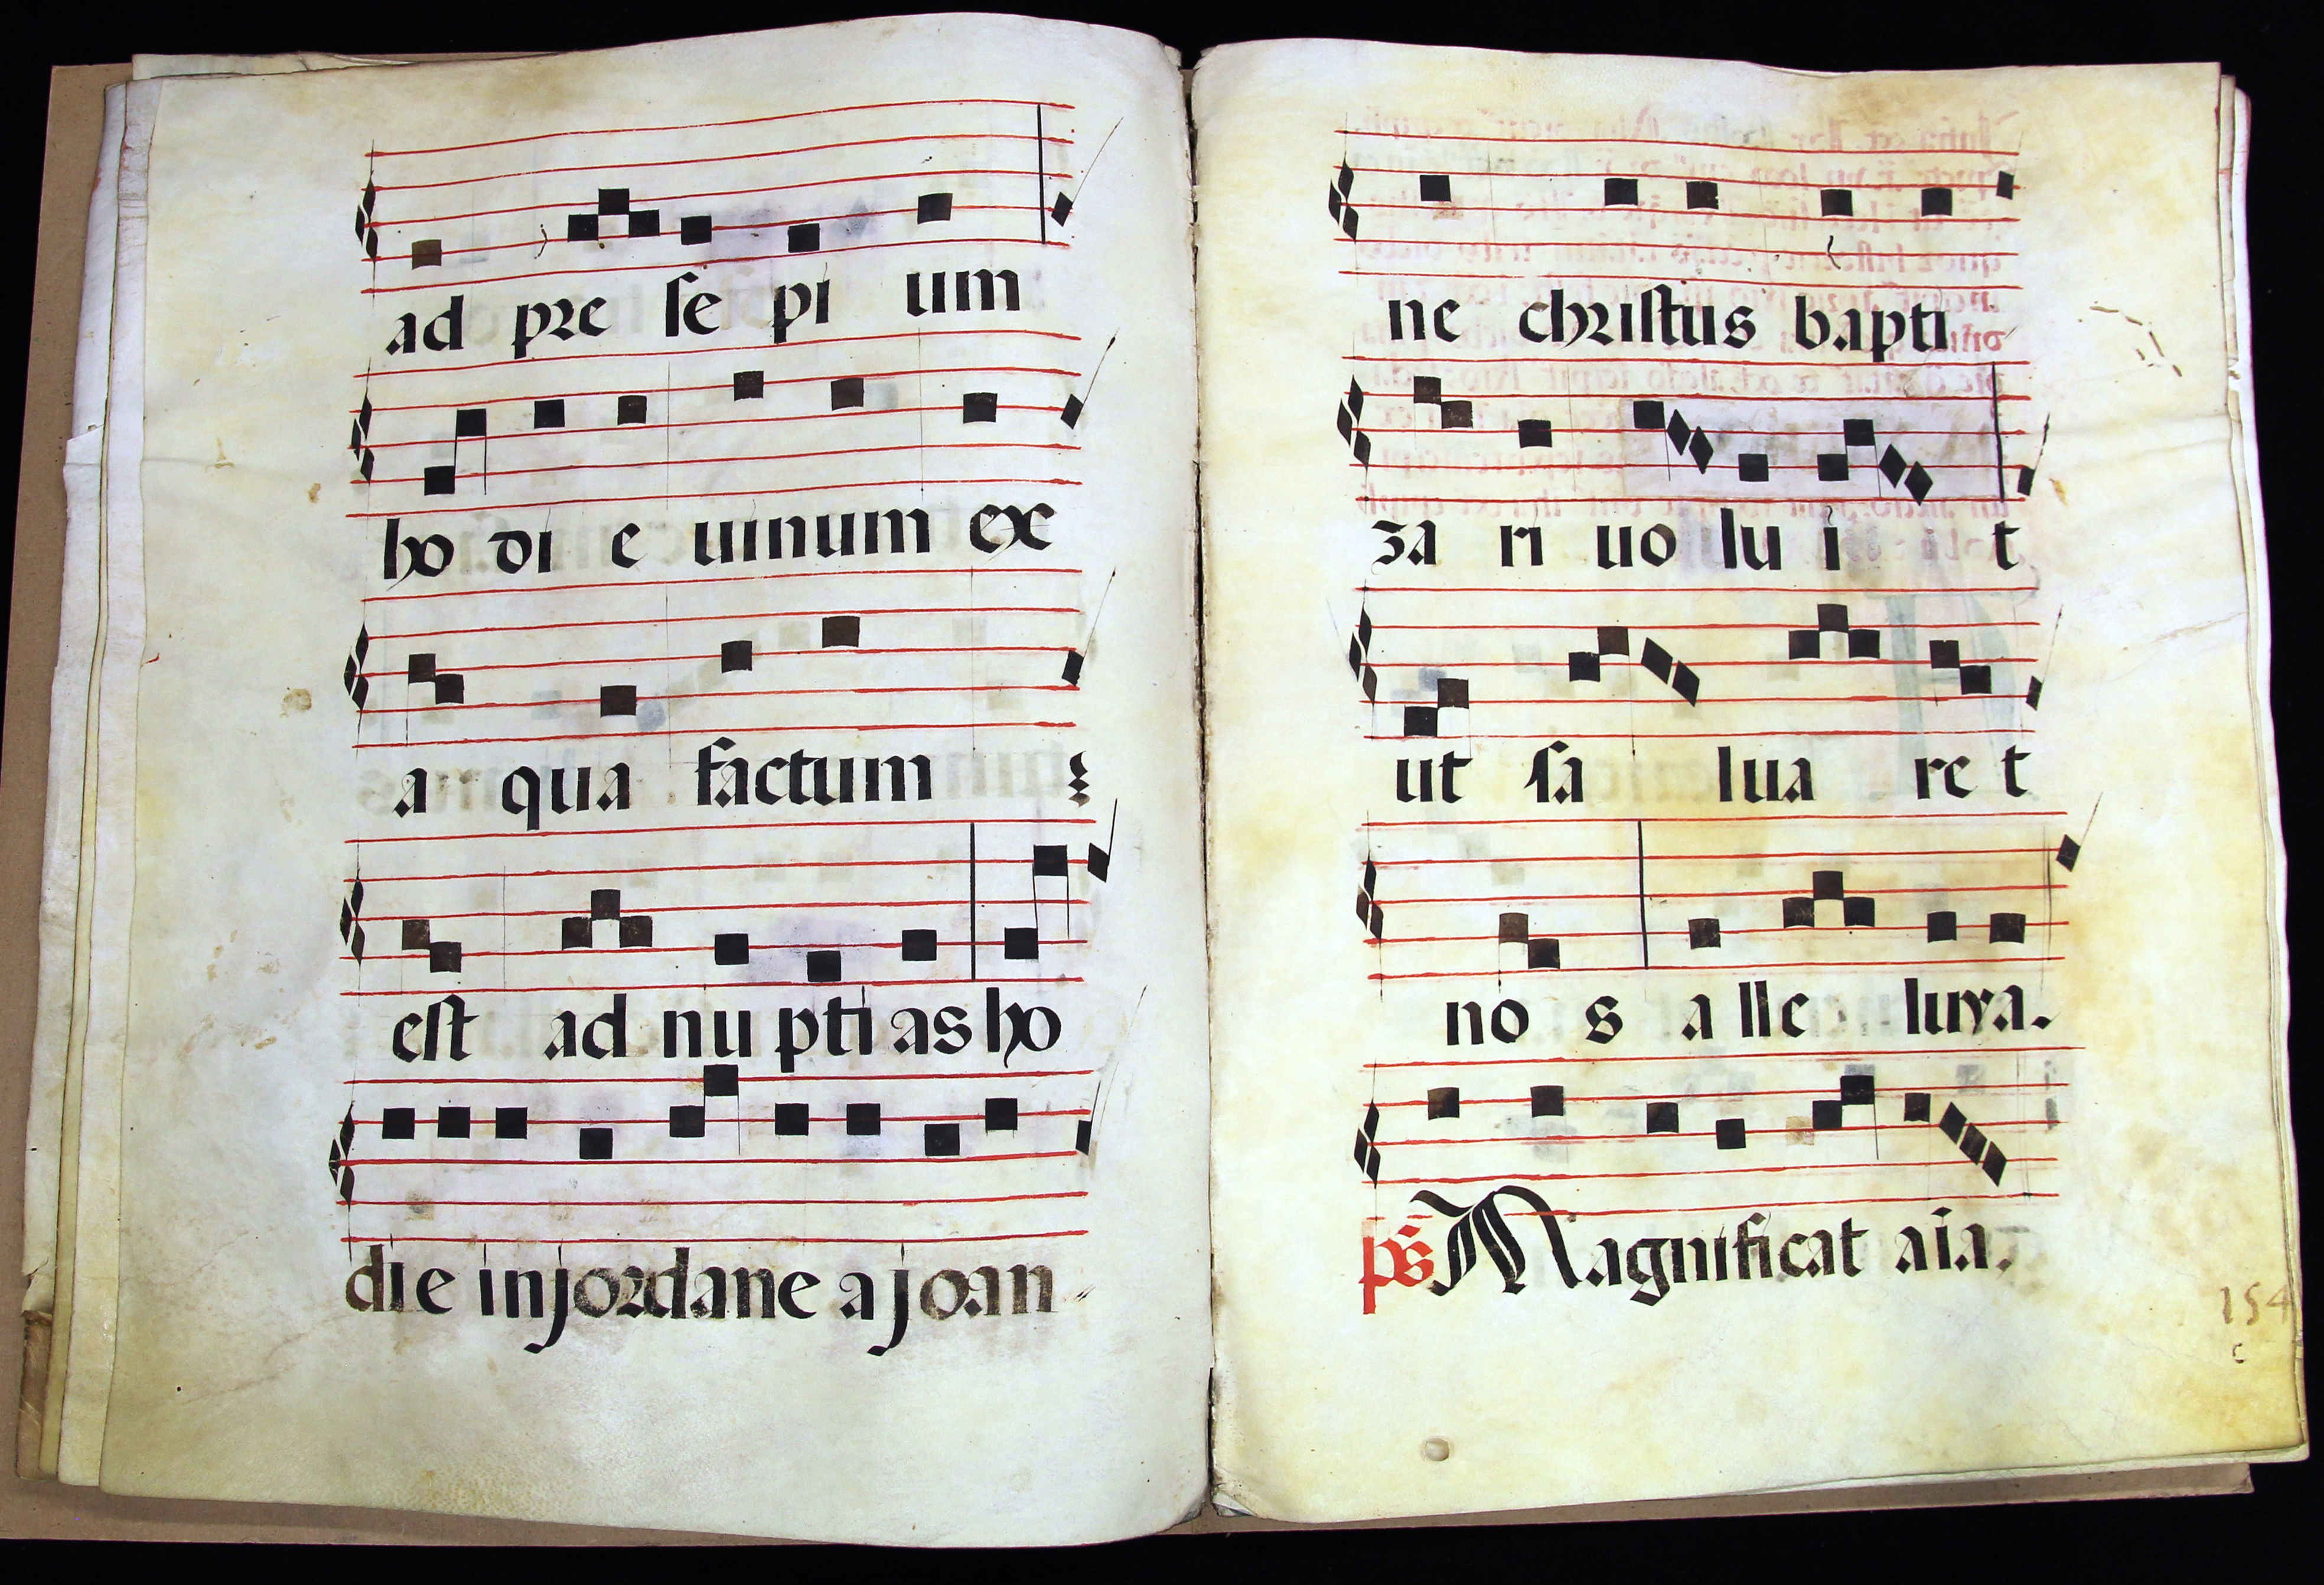 ad pre se pi um
ho di e uinum ex
a qua factum
est ad nu pti as ho
die in jordane a joan
ne christus bapti
za ri uo lu i t
ut sa lua re t
no s a lle luya.
ps Magnificat aia.
154
c